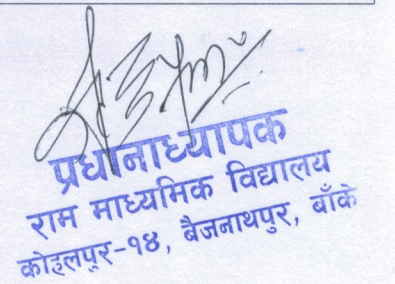 प्रधानाध्यापक
राम माध्यमिक विद्यालय
कोइलपुर-१४, बैजनाथपुर, बाँके